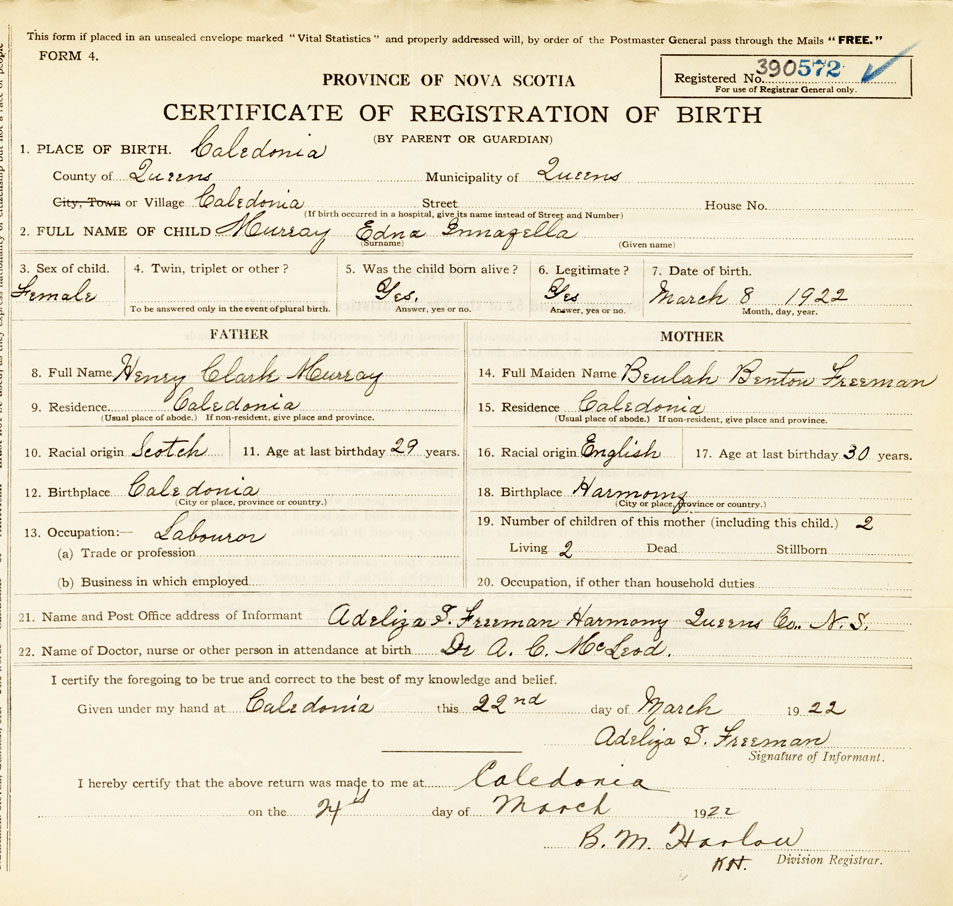 This form if placed in an unsealed envelope marked "Vital Statistics" and properly addressed will, by order of the Postmaster General pass through the Mails "FREE."
FORM 4.
PROVINCE OF NOVA SCOTIA
Registered No. 390572
For use of Registrar General only.
CERTIFICATE OF REGISTRATION OF BIRTH
(BY PARENT OR GUARDIAN)
1. PLACE OF BIRTH. Caledonia
County of Queens Municipality of Queens
City, Town or Village Caledonia Street House No.
(If birth occurred in a hospital, give its name instead of Street and Number)
2. FULL NAME OF CHILD Murray Edna
(Surname) (Given name)
3. Sex of child. 4. Twin, triplet or other? 5. Was the child born alive? 6. Legitimate? 7. Date of birth.
Female Yes. Yes March 8 1922
To be answered only in the event of plural birth. Answer, yes or no. Answer, yes or no. Month, day, year.
FATHER MOTHER
8. Full Name Henry Clark Murray 14. Full Maiden Name Beulah Benton Freeman
9. Residence Caledonia 15. Residence Caledonia
(Usual place of abode.) If non-resident, give place and province. (Usual place of abode.) If non-resident, give place and province.
10. Racial origin Scotch 11. Age at last birthday 29 years. 16. Racial origin English 17. Age at last birthday 30 years.
12. Birthplace Caledonia 18. Birthplace Harmony
(City or place, province or country.) (City or place, province or country.)
13. Occupation:— Labouror 19. Number of children of this mother (including this child.) 2
(a) Trade or profession Living 2 Dead Stillborn
(b) Business in which employed 20. Occupation, if other than household duties
21. Name and Post Office address of Informant Adeliza S. Freeman Harmony Queens Co. N.S.
22. Name of Doctor, nurse or other person in attendance at birth Dr A. C. McLeod.
I certify the foregoing to be true and correct to the best of my knowledge and belief.
Given under my hand at Caledonia this 22nd day of March 1922
Adeliza S. Freeman
Signature of Informant.
I hereby certify that the above return was made to me at Caledonia
on the day of March 1922
B. M. Harlow
K.H. Division Registrar.